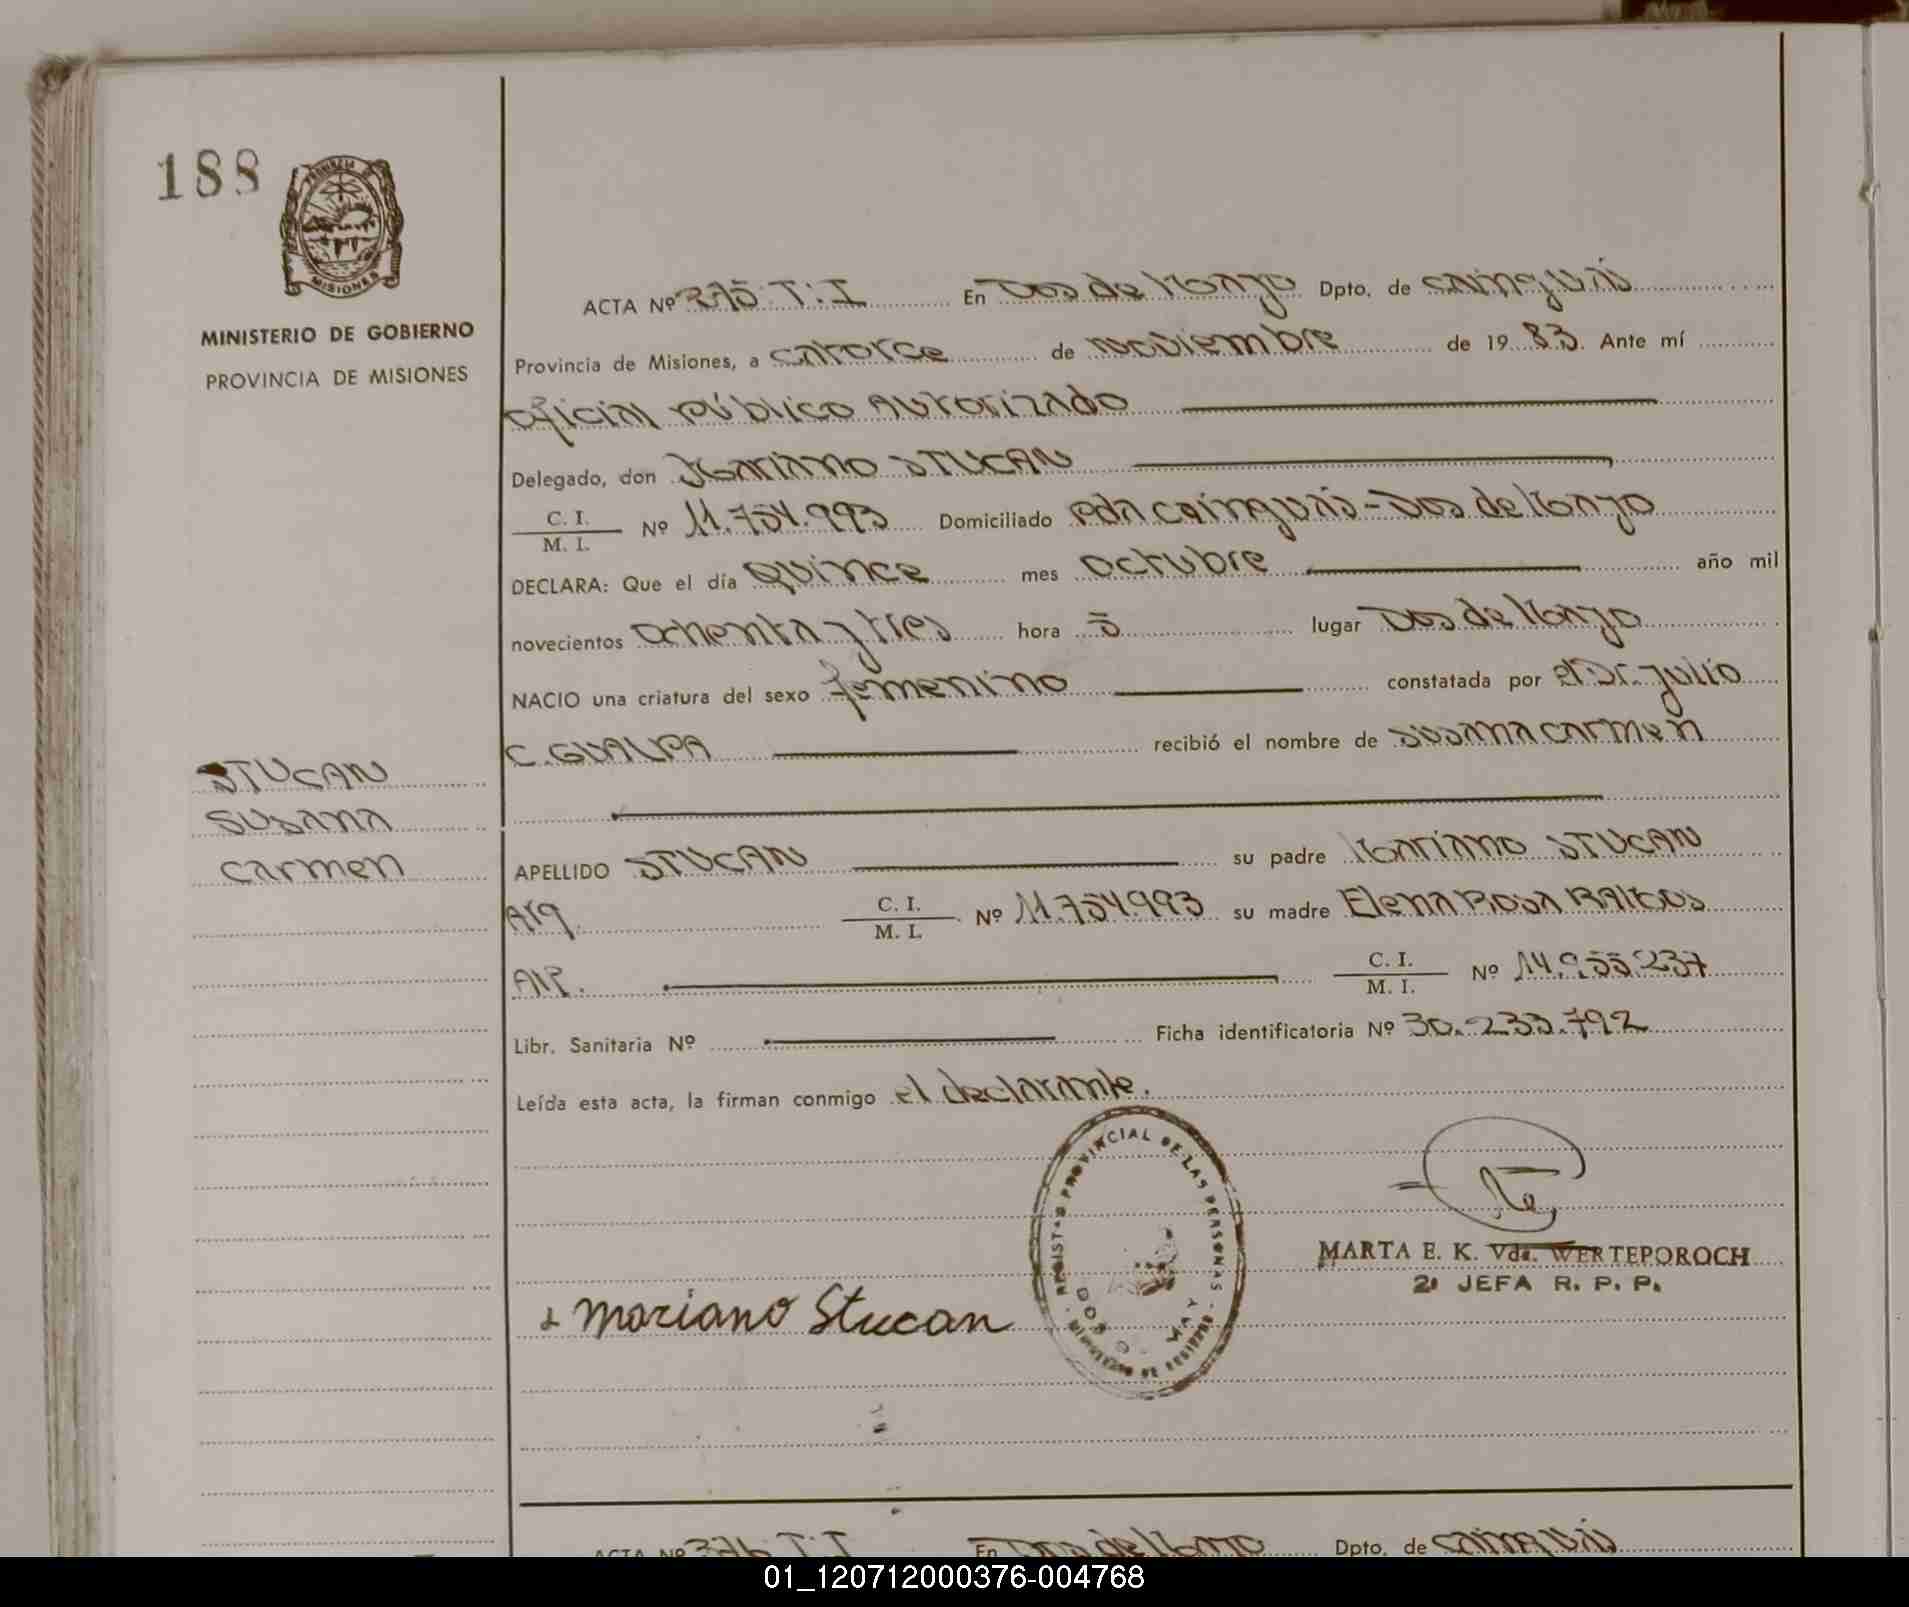 188
PROVINCIA DE
MISIONES
MINISTERIO DE GOBIERNO
PROVINCIA DE MISIONES
ACTA Nº 375 T: I En Dos de Mayo Dpto. de Cainguás
Provincia de Misiones, a catorce de noviembre de 19 83. Ante mí
Oficial Público Autorizado
Delegado, don Mariano STUCAN
C. I. / M. I. Nº 11.754.993 Domiciliado Pdn Cainguás - Dos de Mayo
DECLARA: Que el día Quince mes Octubre año mil
novecientos ochenta y tres hora 5 lugar Dos de Mayo
NACIO una criatura del sexo femenino constatada por el Dr. Julio
C. GUALPA recibió el nombre de Susana Carmen
STUCAN
Susana
Carmen
APELLIDO STUCAN su padre Mariano STUCAN
Arg. C. I. / M. I. Nº 11.754.993 su madre Elena Rosa
C. I. / M. I. Nº 14.955.237
Libr. Sanitaria Nº Ficha identificatoria Nº 30.233.792
Leída esta acta, la firman conmigo el declarante.
REGISTRO PROVINCIAL DE LAS PERSONAS
MINISTERIO DE GOBIERNO
DOS DE MAYO
MARTA E. K. Vda. WERTEPOROCH
2ª JEFA R. P. P.
Mariano Stucan
ACTA Nº 376 T: I En Dos de Mayo Dpto. de Cainguás
01_120712000376-004768